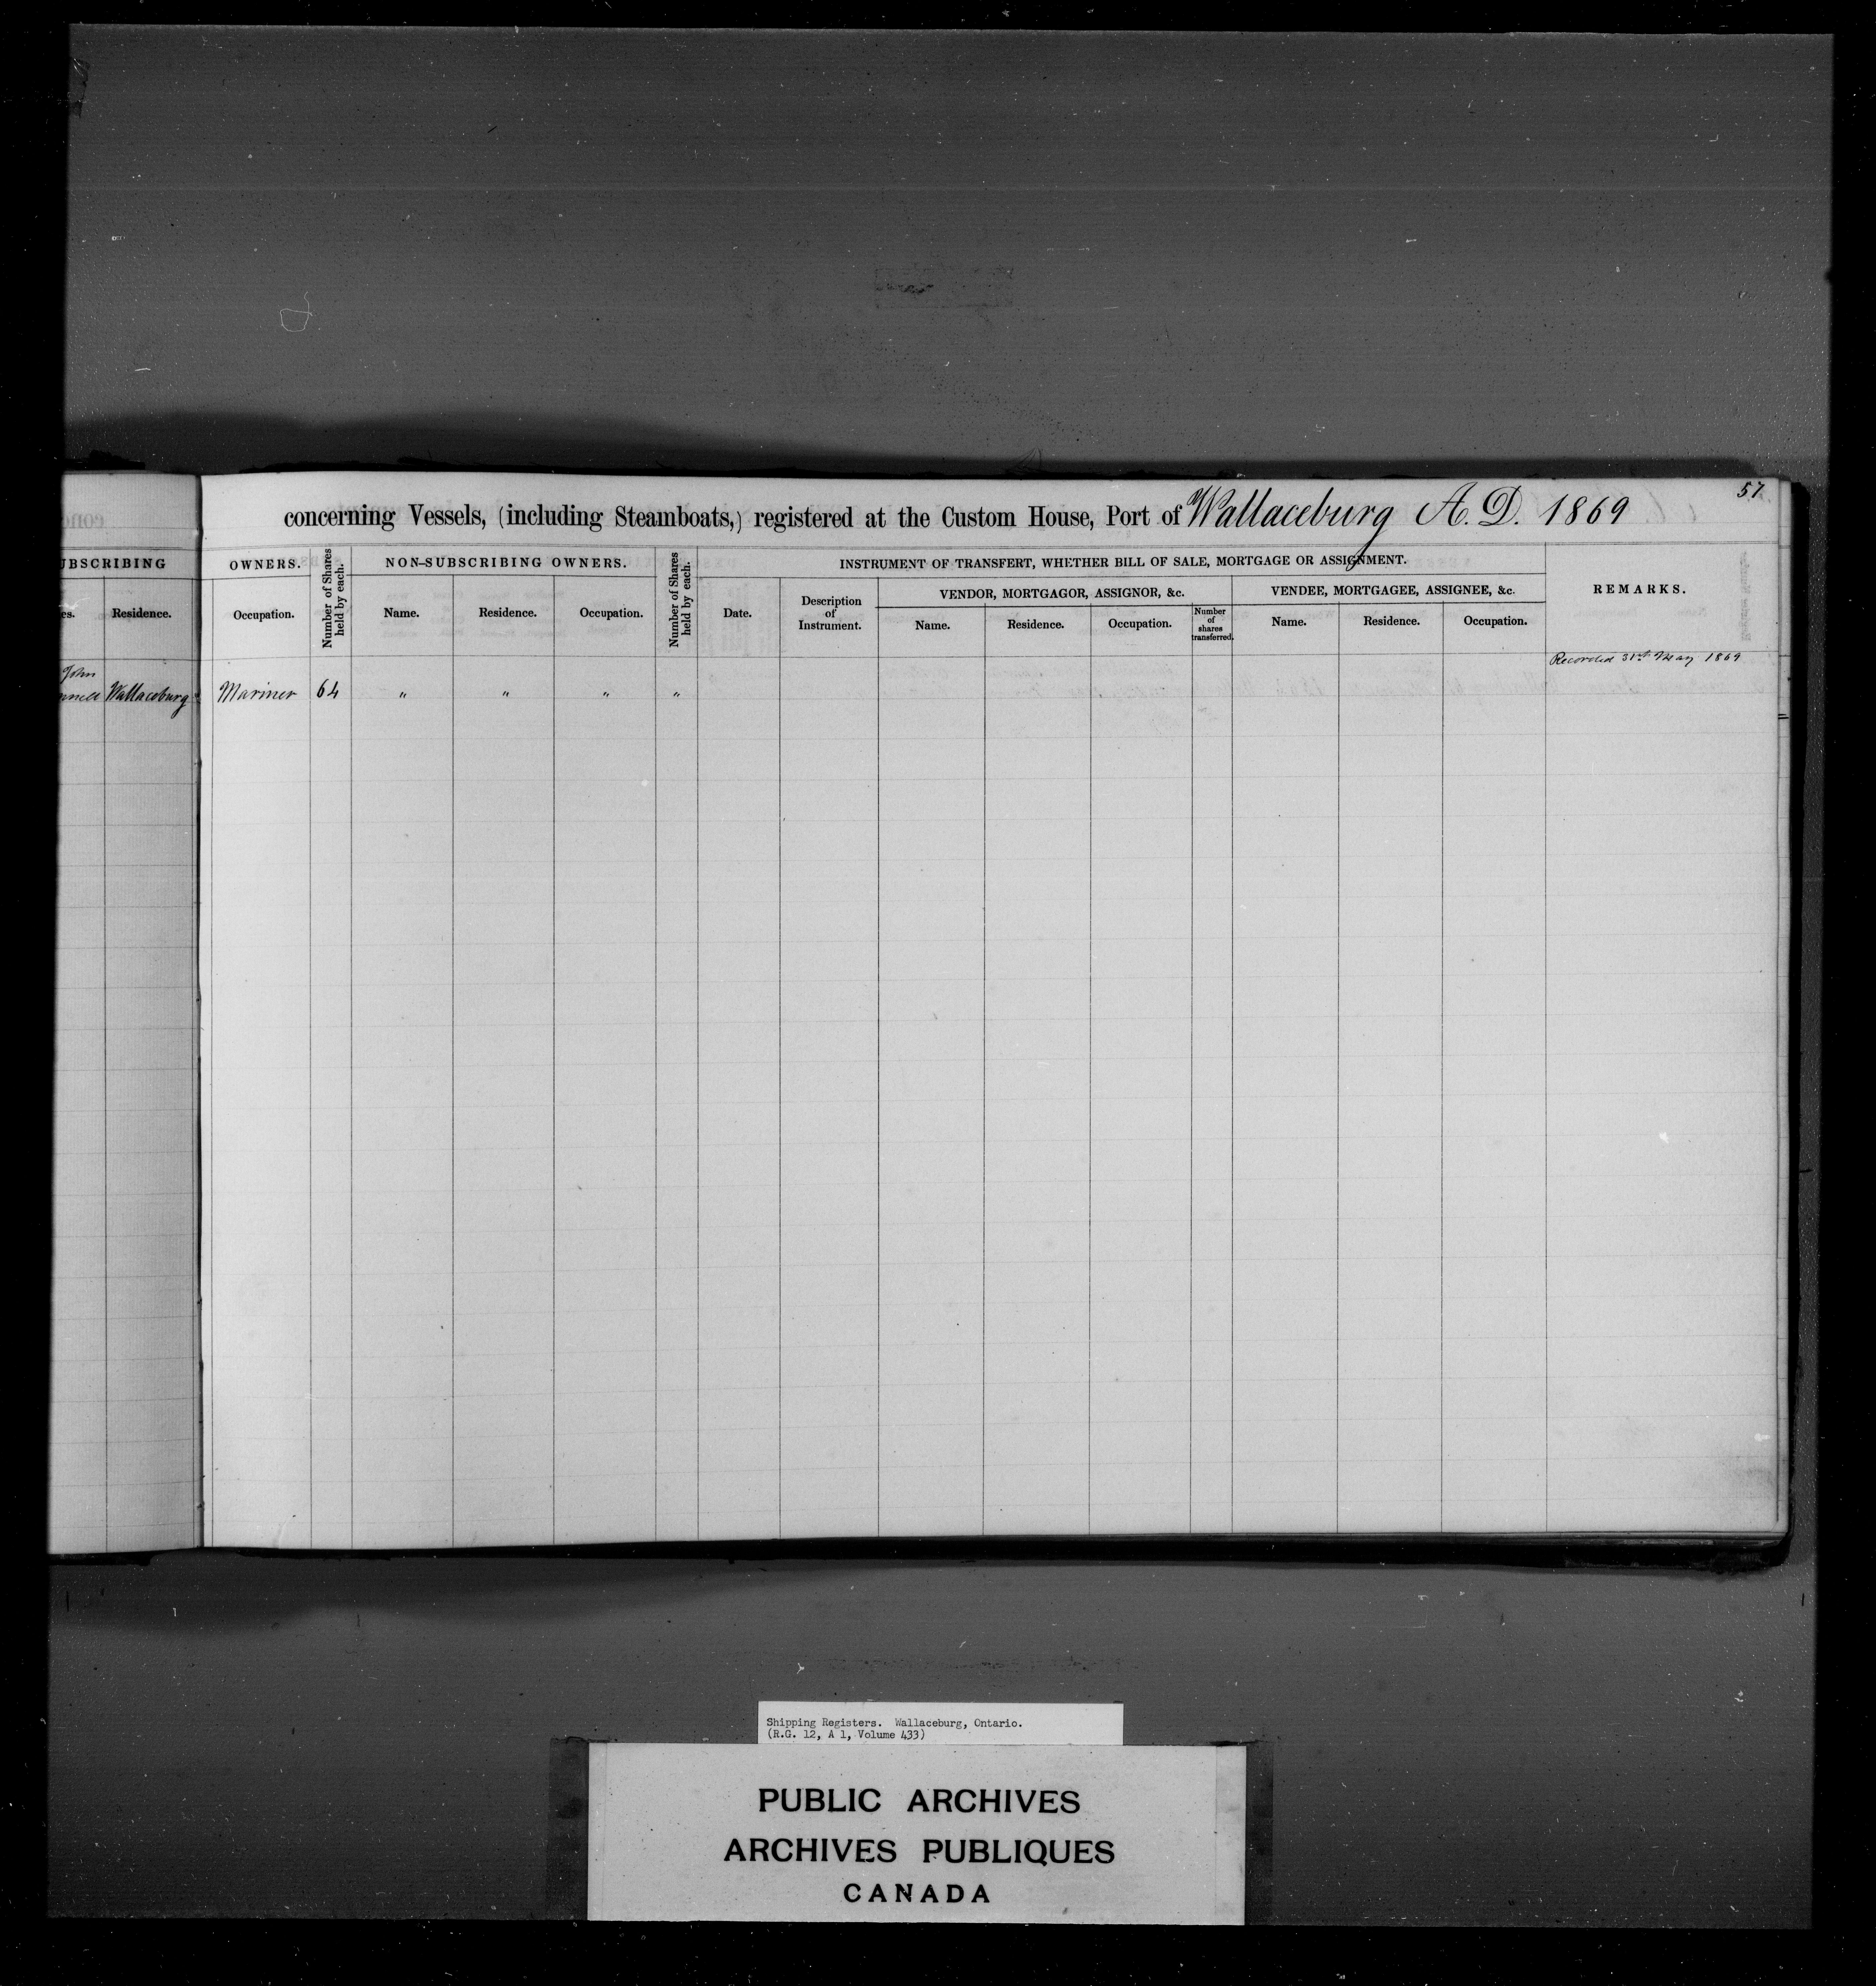 57
concerning Vessels, (including Steamboats,) registered at the Custom House, Port of Wallaceburg A.D. 1869
UBSCRIBING
OWNERS.
Number of Shares held by each.
NON-SUBSCRIBING OWNERS.
Number of Shares held by each.
INSTRUMENT OF TRANSFERT, WHETHER BILL OF SALE, MORTGAGE OR ASSIGNMENT.
REMARKS.
es.
Residence.
Occupation.
Name.
Residence.
Occupation.
Date.
Description
of
Instrument.
VENDOR, MORTGAGOR, ASSIGNOR, &c.
Name.
Residence.
Occupation.
Number
of
shares
transferred.
VENDEE, MORTGAGEE, ASSIGNEE, &c.
Name.
Residence.
Occupation.
Recorded 31st May 1869
John
Wallaceburg Mariner 64 " " " "
Shipping Registers. Wallaceburg, Ontario.
(R.G. 12, A 1, Volume 433)
PUBLIC ARCHIVES
ARCHIVES PUBLIQUES
CANADA